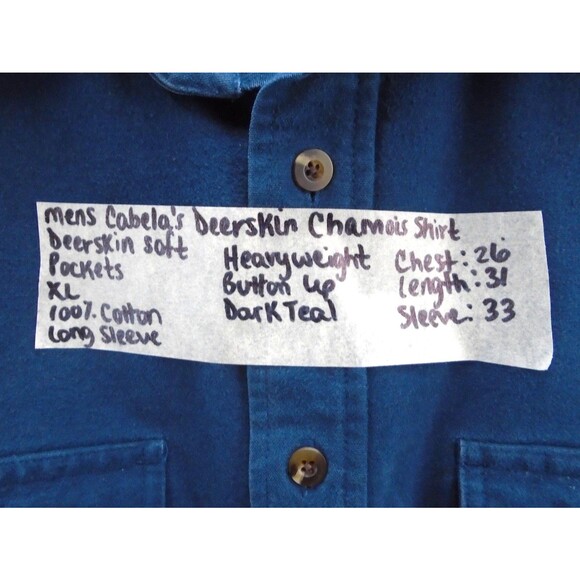 mens Cabela's Deerskin Chamois Shirt
Deerskin Soft
Pockets
XL
100% Cotton
Long Sleeve
Heavyweight
Button up
Dark Teal
Chest: 26
Length: 31
Sleeve: 33